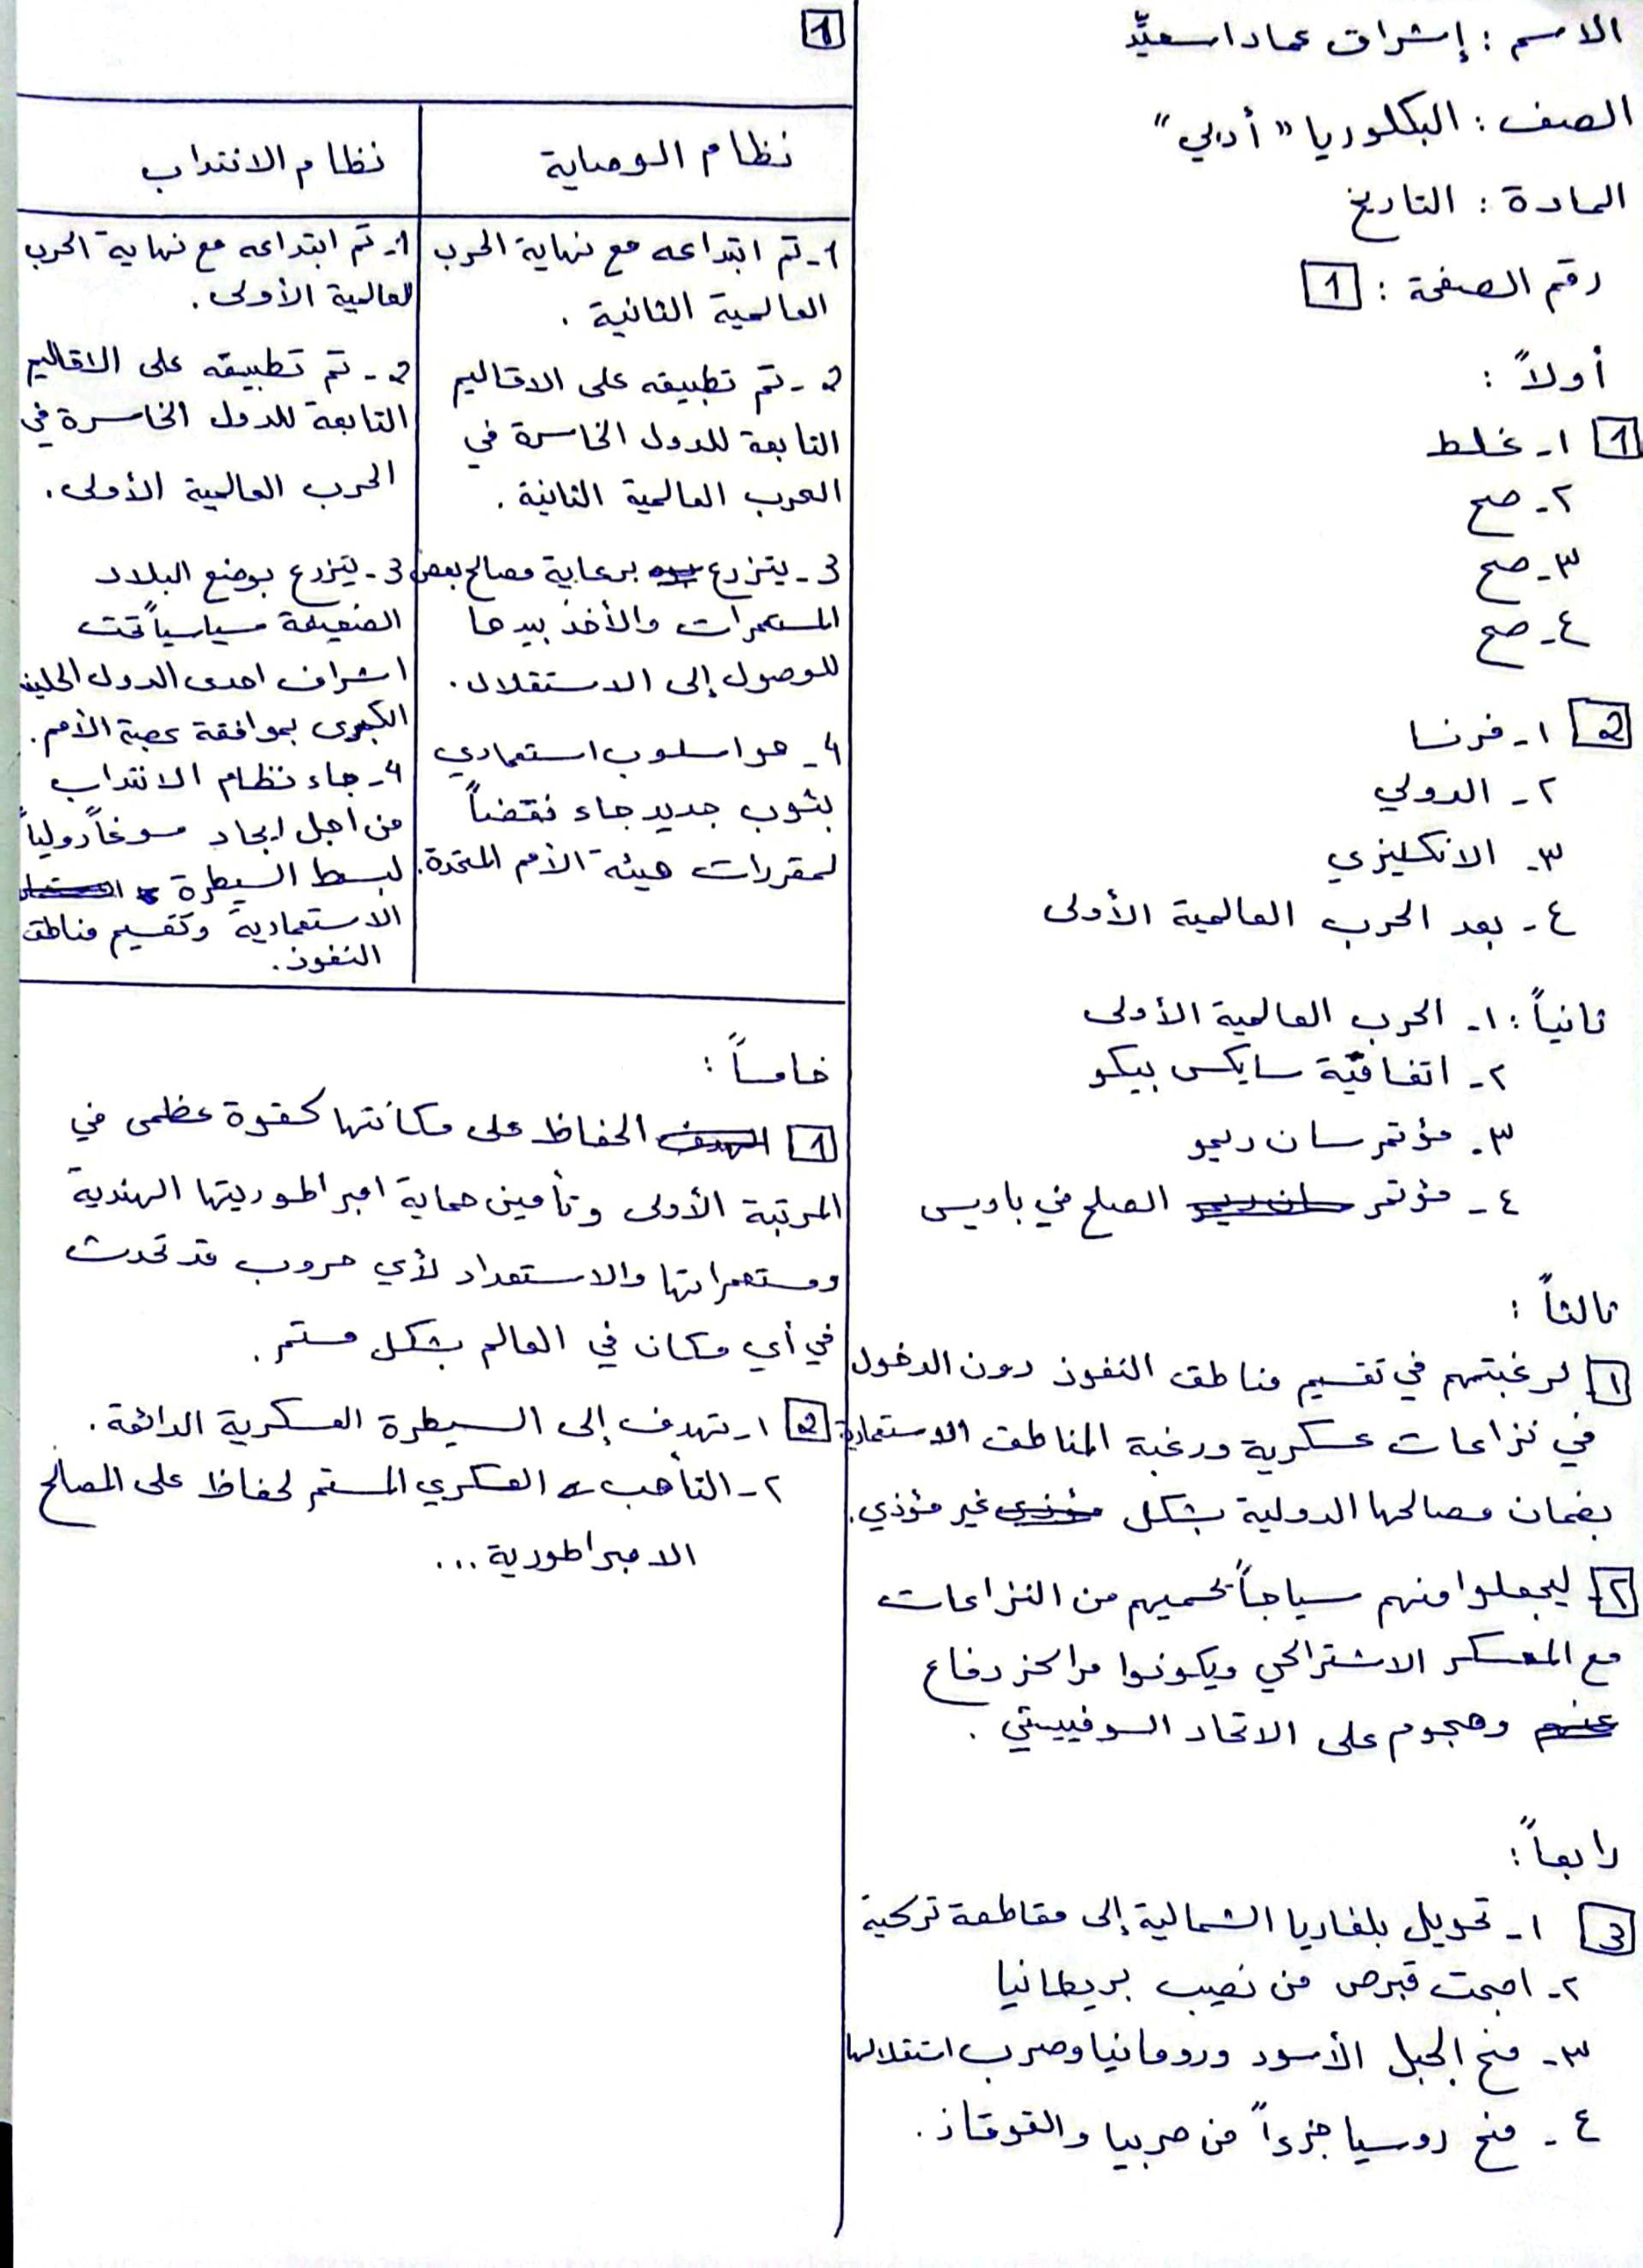 الاسم : إشراق عماد اسعيِّد
الصف : البكلوريا "أدبي"
المادة : التاريخ
رقم الصفحة : 1
أولاً :
1 ١- غلط
٢- صح
٣- صح
٤- صح
2 ١- فرنسا
٢- الدولي
٣- الانكليزي
٤- بعد الحرب العالمية الأولى
ثانياً : ١- الحرب العالمية الأولى
٢- اتفاقية سايكس بيكو
٣. مؤتمر سان ريمو
٤- مؤتمر سان ريمو الصلح في باريس
ثالثاً :
١ لرغبتهم في تقسيم مناطق النفوذ دون الدخول
في نزاعات عسكرية ورغبة المناطق الاستعمارية
بضمان مصالحها الدولية بشكل مؤذي غير مؤذي.
٢ ليجعلوا منهم سياجاً يحميهم من النزاعات
مع المعسكر الاشتراكي ويكونوا مراكز دفاع
عنهم وهجوم على الاتحاد السوفييتي .
رابعاً :
3 ١- تحويل بلغاريا الشمالية إلى مقاطعة تركية
٢- اصبحت قبرص من نصيب بريطانيا
٣- منح الجبل الأسود ورومانيا وصرب استقلالها
٤- منح روسيا جزءاً من صربيا والقوقاز .
1
نظام الوصاية
1- تم ابتداعه مع نهاية الحرب
العالمية الثانية .
2- تم تطبيقه على الاقاليم
التابعة للدول الخاسرة في
الحرب العالمية الثانية .
3- يتزرع برعاية مصالح بعض
المستعمرات والأخذ بيدها
للوصول إلى الاستقلال .
4- هو اسلوب استعماري
بثوب جديد جاء نقضاً
لمقررات هيئة الأمم المتحدة.
نظام الانتداب
1- تم ابتداعه مع نهاية الحرب
العالمية الأولى .
2- تم تطبيقه على الاقاليم
التابعة للدول الخاسرة في
الحرب العالمية الأولى .
3- يتزرع بوضع البلاد
الضعيفة سياسياً تحت
اشراف احدى الدول الحليفة
الكبرى بموافقة عصبة الأمم .
4- جاء نظام الانتداب
من اجل ايجاد مسوغاً دولياً
لبسط السيطرة
الاستعمارية وتقسيم مناطق
النفوذ .
خامساً :
1 الهدف الحفاظ على مكانتها كقوة عظمى في
المرتبة الأولى وتأمين حماية امبراطوريتها الهندية
ومستعمراتها والاستعداد لأي حروب قد تحدث
في أي مكان في العالم بشكل مستمر .
2 ١- تهدف إلى السيطرة العسكرية الدائمة .
٢- التأهب العسكري المستمر لحفاظ على المصالح
الامبراطورية ...